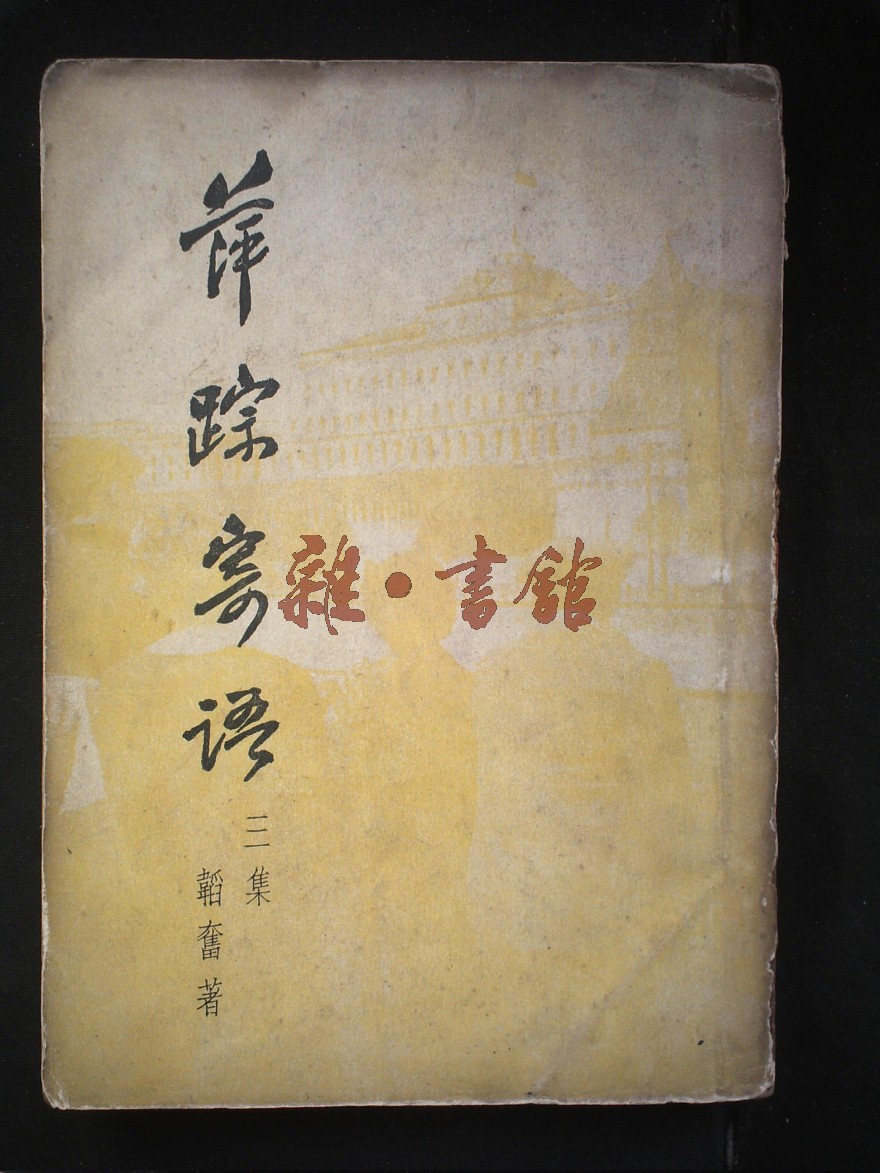 萍踪寄语
三集
韜奮著
雜·書館